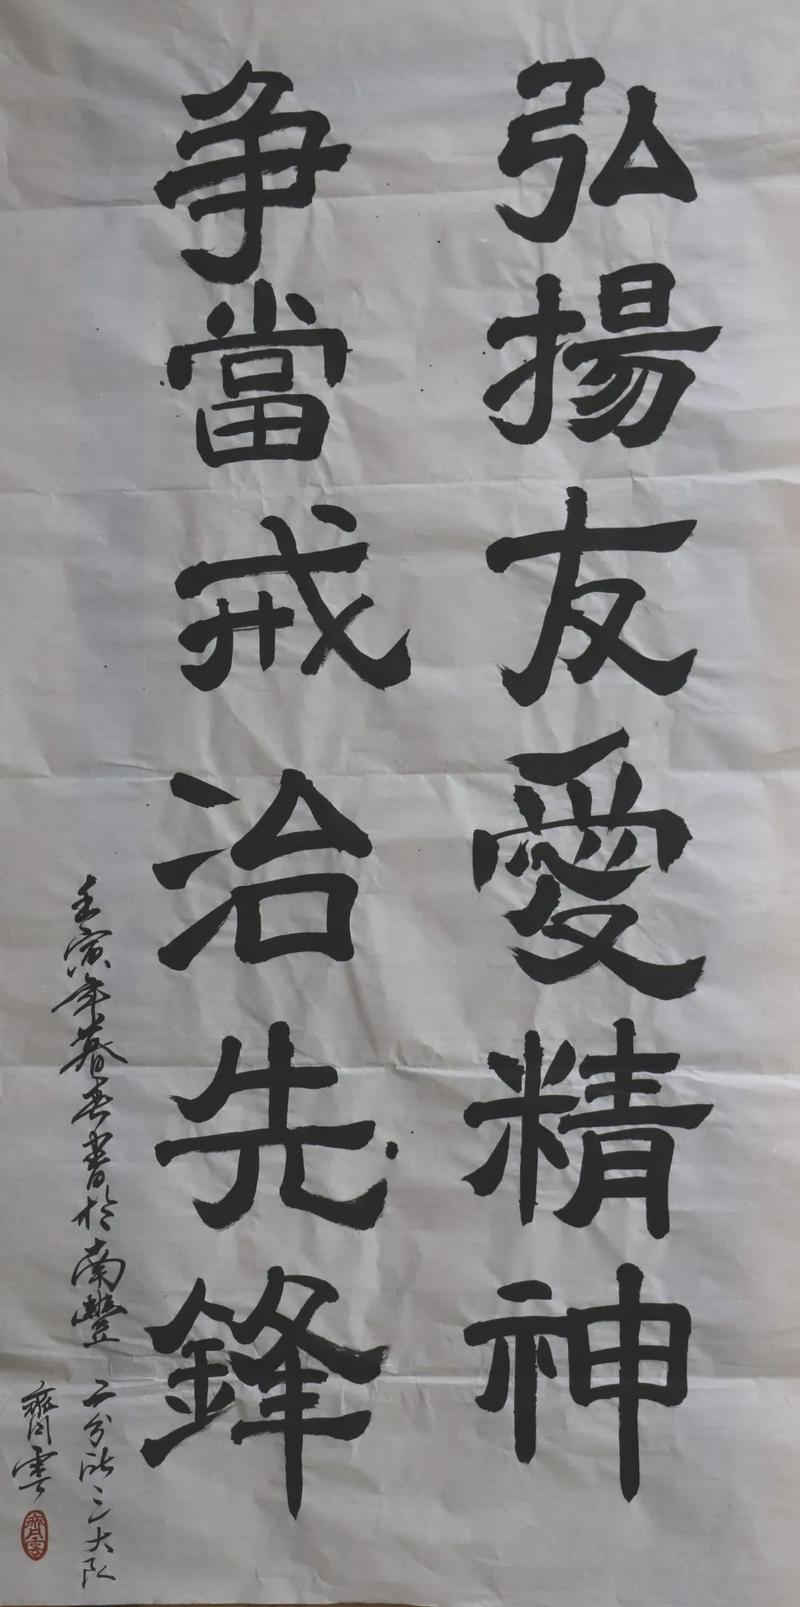 弘揚友愛精神
争當戒治先鋒
壬寅年暮春書於南豐
二分所三大队
齊雲
齊雲